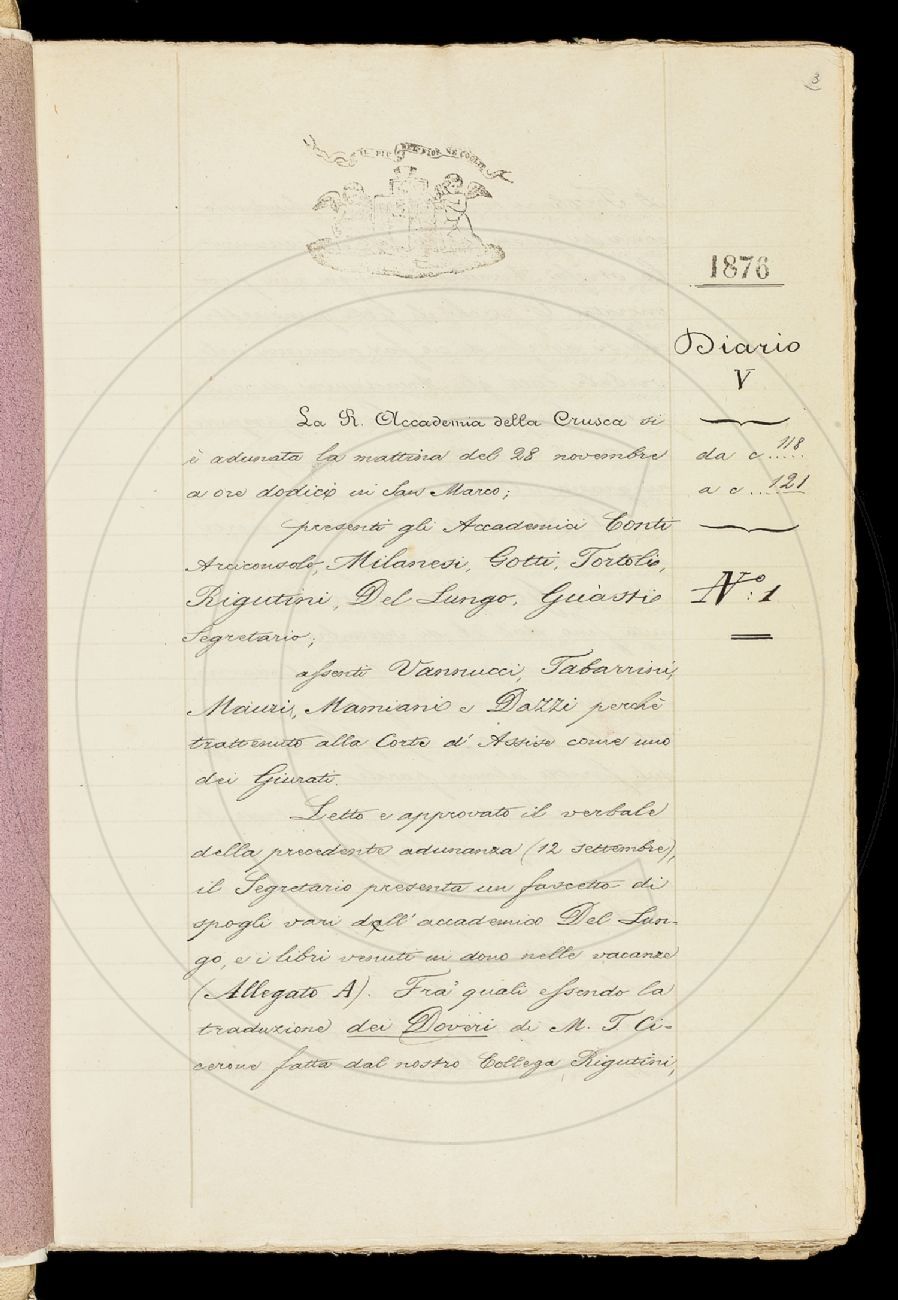 3
IL PIÙ BEL FIOR NE COGLIE
1876
Diario
V
da c. 118
a c. 121
N.º 1
La R. Accademia della Crusca si
è adunata la mattina del 28 novembre
a ore dodici in San Marco;
presenti gli Accademici Conti
Arciconsolo, Milanesi, Gotti, Tortoli,
Rigutini, Del Lungo, Guasti
Segretario;
assenti Vannucci, Tabarrini,
Mauri, Mamiani e Dazzi perchè
trattenuto alla Corte d'Assise come uno
dei Giurati.
Letto e approvato il verbale
della precedente adunanza (12 settembre),
il Segretario presenta un fascetto di
spogli vari dell'accademico Del Lun-
go, e i libri venuti in dono nelle vacanze
(Allegato A). Fra' quali essendo la
traduzione dei Doveri di M. T. Ci-
cerone fatta dal nostro Collega Rigutini,